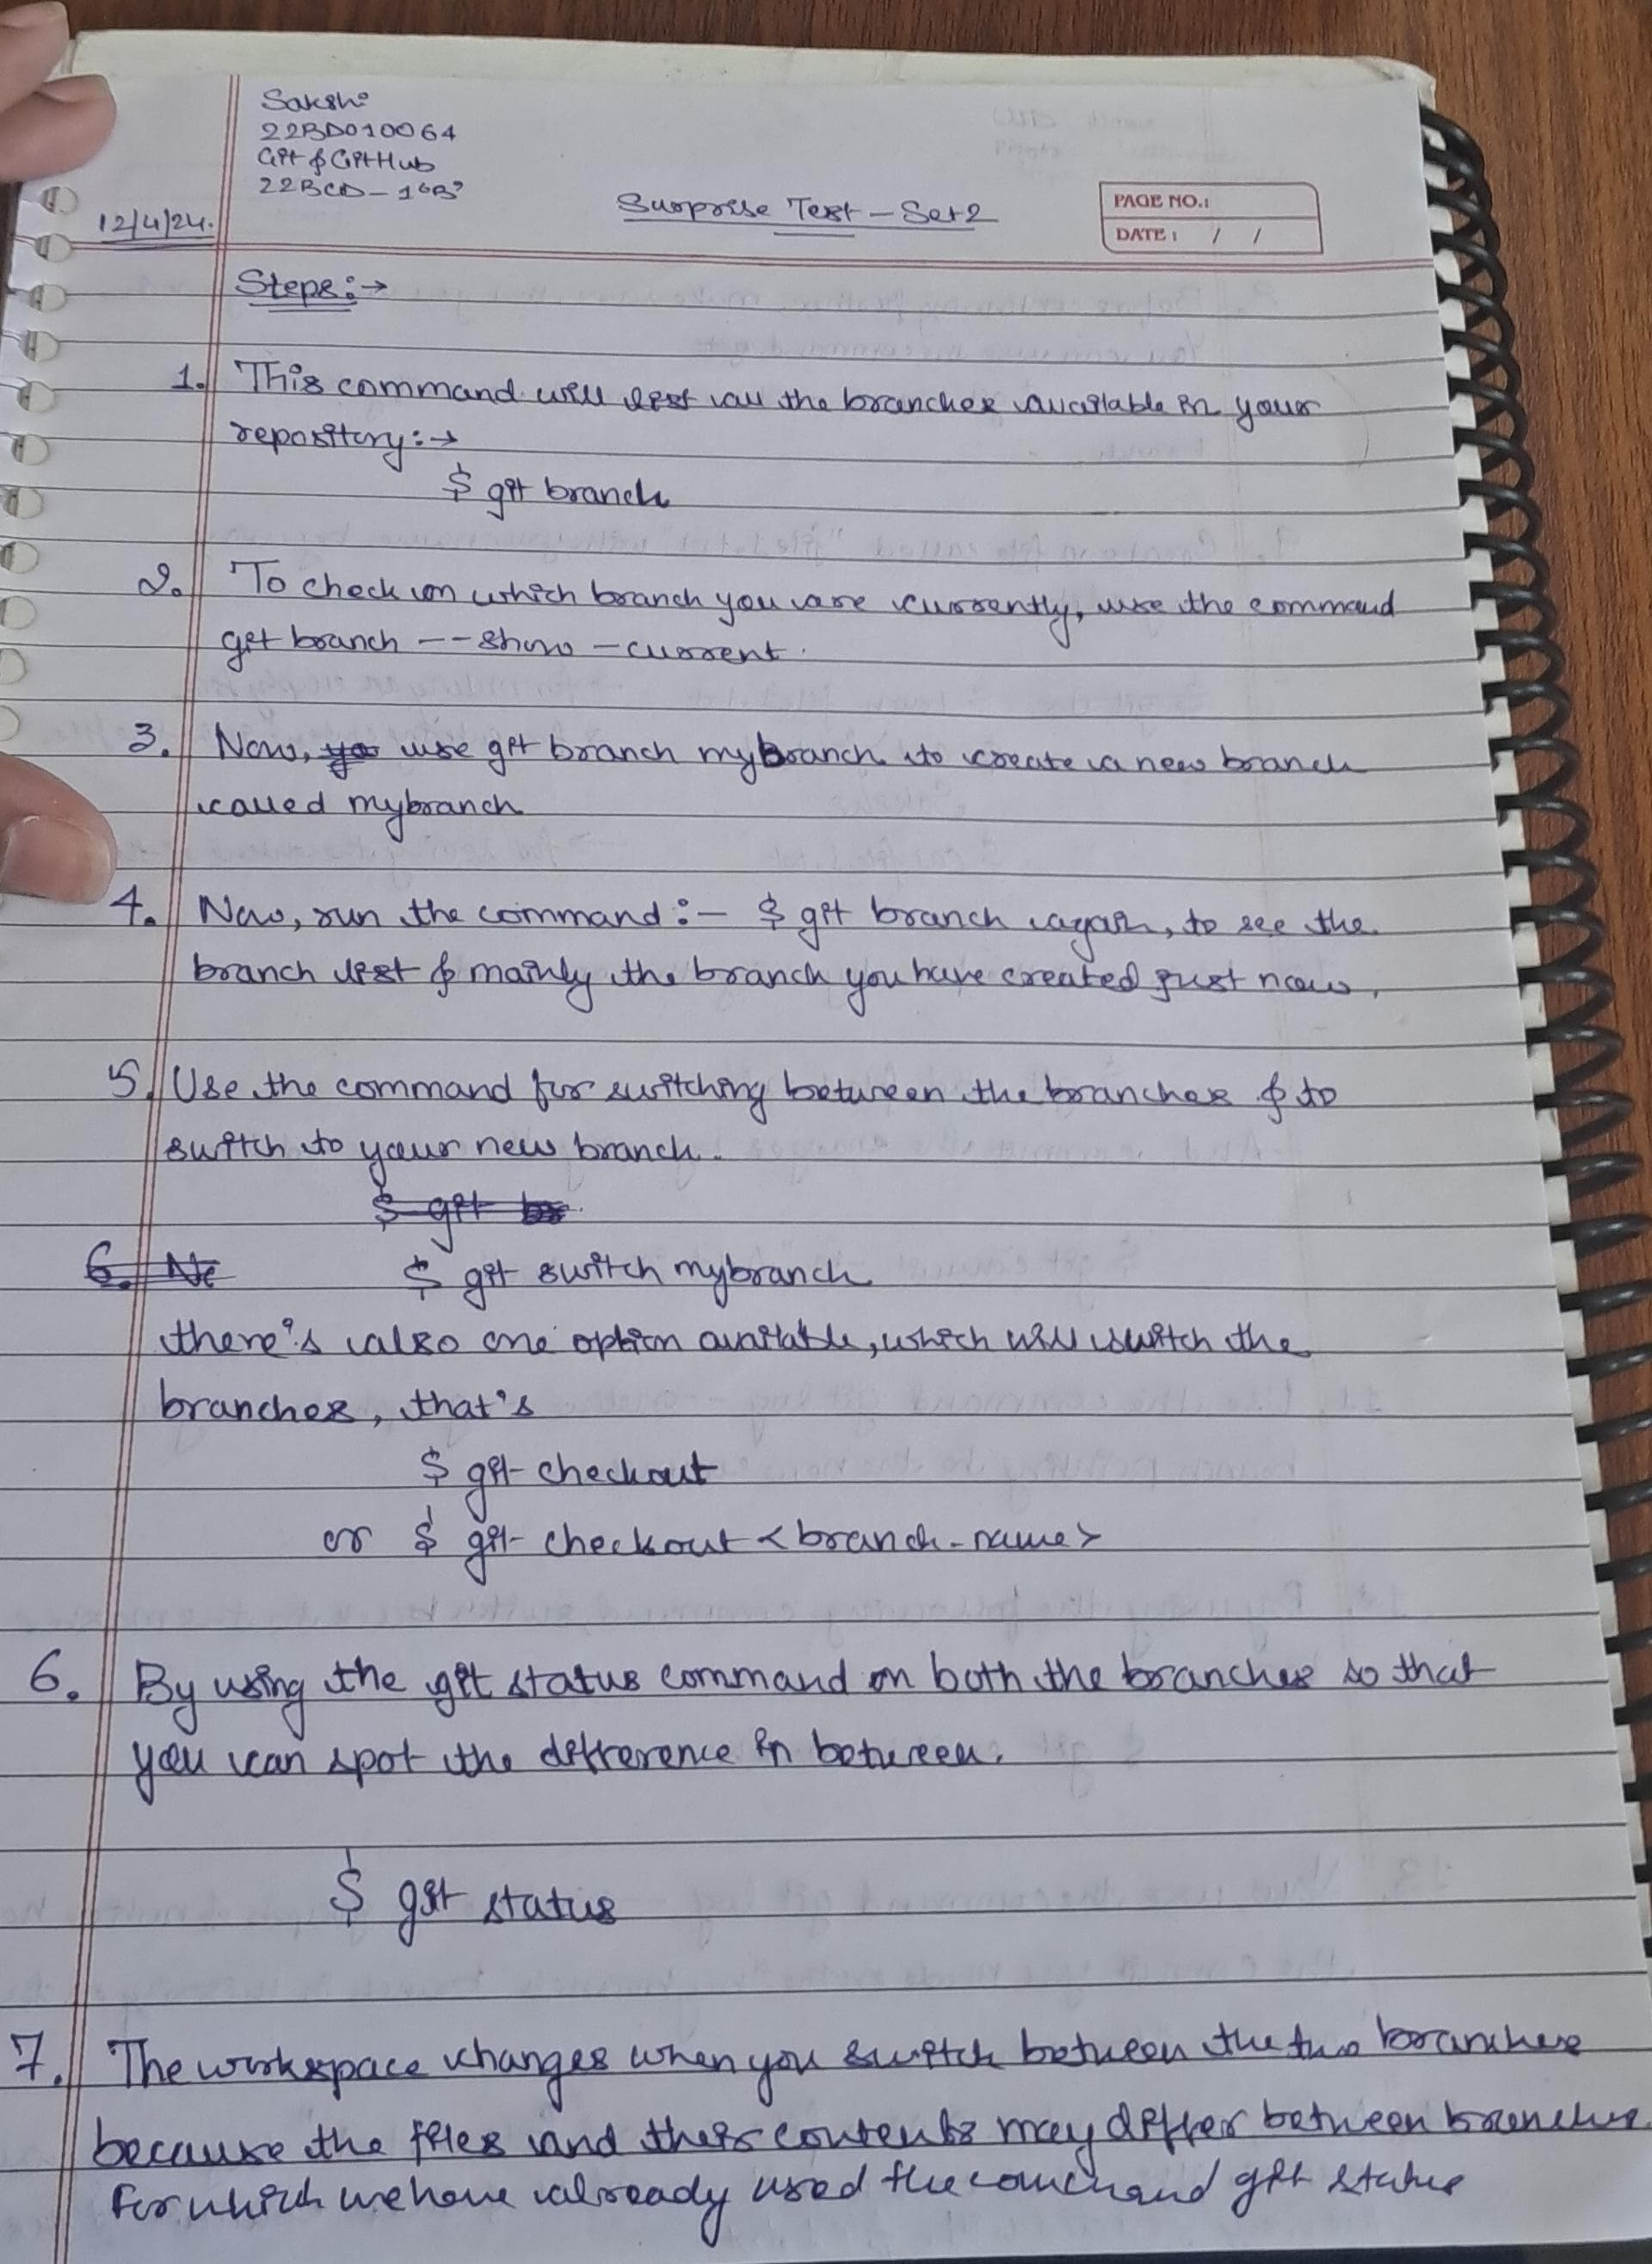 Sakshi
22BD010064
Git & GitHub
22BCD-1 "B"
12/4/24.
Surprise Test - Set 2
PAGE NO.:
DATE: / /
Steps:→
1. This command will list all the branches available in your
repository:→
$ git branch
2. To check on which branch you are currently, use the command
git branch --show-current.
3. Now, use git branch mybranch to create a new branch
called mybranch
4. Now, run the command:- $ git branch again, to see the
branch list & mainly the branch you have created just now.
5. Use the command for switching between the branches & to
switch to your new branch.
$ git
6. Ne $ git switch mybranch
there's also one option available, which will switch the
branches, that's
$ git checkout
or $ git checkout <branch-name>
6. By using the git status command on both the branches so that
you can spot the difference in between.
$ git status
7. The workspace changes when you switch between the two branches
because the files and their contents may differ between branches
for which we have already used the command git status